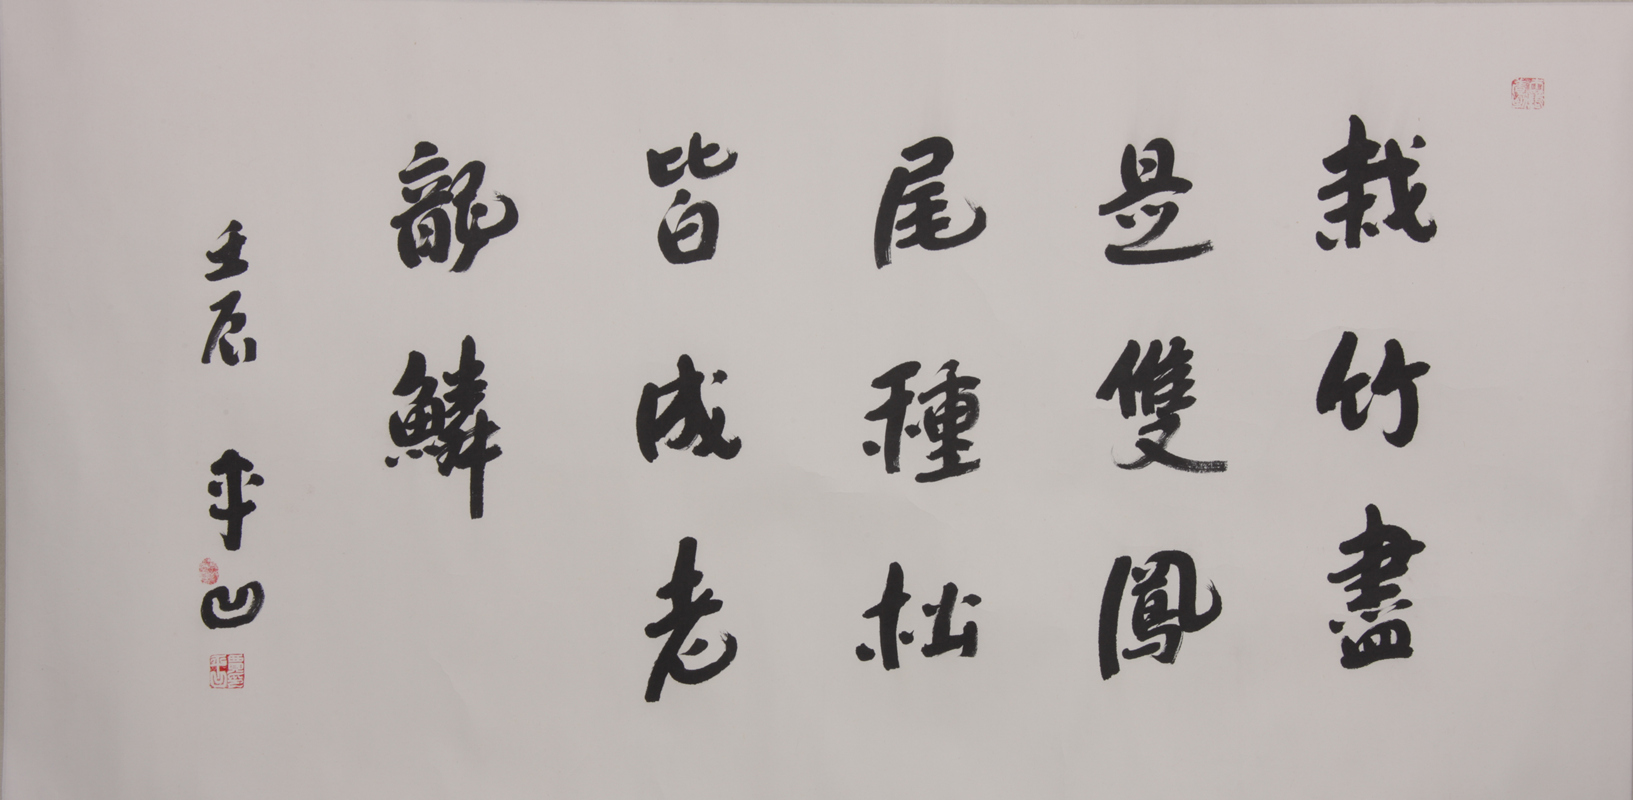 栽竹盡
是雙鳳
尾種松
皆成老
龍鱗
壬辰 平凹